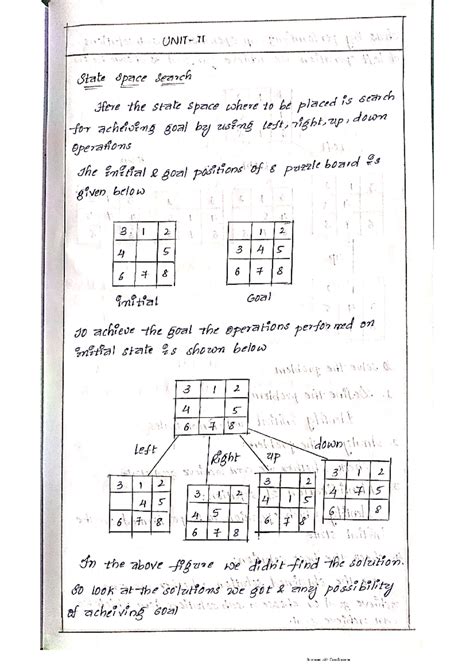 UNIT-II
State Space Search
Here the state space where to be placed is search
for acheiving goal by using left, right, up, down
operations
The initial & goal positions of 8 puzzle board is
given below
3 1 2
4 5
6 7 8
initial
1 2
3 4 5
6 7 8
Goal
To achieve the goal the operations performed on
initial state is shown below
3 1 2
4 5
6 7 8
left
Right
up
down
3 1 2
4 5
6 7 8
3 1 2
4 5
6 7 8
3 2
4 1 5
6 7 8
3 1 2
4 7 5
6 8
In the above figure we didn't find the solution.
So look at the solutions we got & any possibility
of acheiving goal